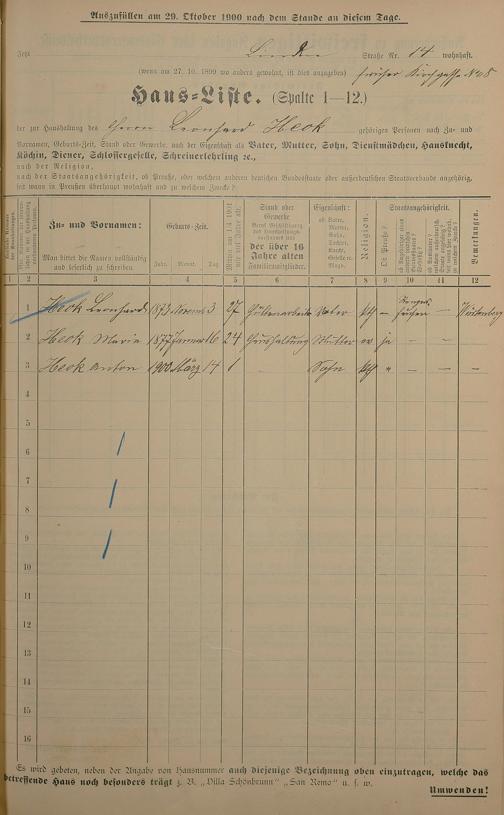 Auszufüllen am 29. Oktober 1900 nach dem Stande an diesem Tage.
Jetzt Straße Nr. 14 wohnhaft.
(wenn am 27. 10. 1899 wo anders gewohnt, ist dies anzugeben) früher Kirchgasse No 8
Haus-Liste. (Spalte 1—12.)
der zur Haushaltung des Herrn Leonhard Heck gehörigen Personen nach Zu- und
Vornamen, Geburts-Zeit, Stand oder Gewerbe, nach der Eigenschaft als Vater, Mutter, Sohn, Dienstmädchen, Hausknecht,
Köchin, Diener, Schlossergeselle, Schreinerlehrling ꝛc.,
nach der Religion,
nach der Staatsangehörigkeit, ob Preuße, oder welchem anderen deutschen Bundesstaate oder außerdeutschen Staatsverbande angehörig,
seit wann in Preußen überhaupt wohnhaft und zu welchem Zwecke?
Zu- und Vornamen:
Man bittet die Namen vollständig
und leserlich zu schreiben
Geburts-Zeit.
Jahr. Monat. Tag.
Stand oder
Gewerbe
der über 16
Jahre alten
Familienmitglieder.
Eigenschaft:
ob Vater,
Mutter,
Sohn,
Tochter,
Knecht,
Geselle u.
Magd.
Religion.
Ob Preuße?
Staatsangehörigkeit.
Bemerkungen.
1 2 3 4 5 6 7 8 9 10 11 12
1 Heck Leonhard 1873 3 27 Vater kth — —
2 Heck Maria 1877 Januar 16 24 Haushaltung Mutter ev ja — — —
3 Heck Anton 1900 März 14 Sohn kth " — — —
4
5
6
7
8
9
10
11
12
13
14
15
16
Es wird gebeten, neben der Angabe von Hausnummer auch diejenige Bezeichnung oben einzutragen, welche das
betreffende Haus noch besonders trägt z. B. „Villa Schönbrunn" „San Remo" u. s. w.
Umwenden!